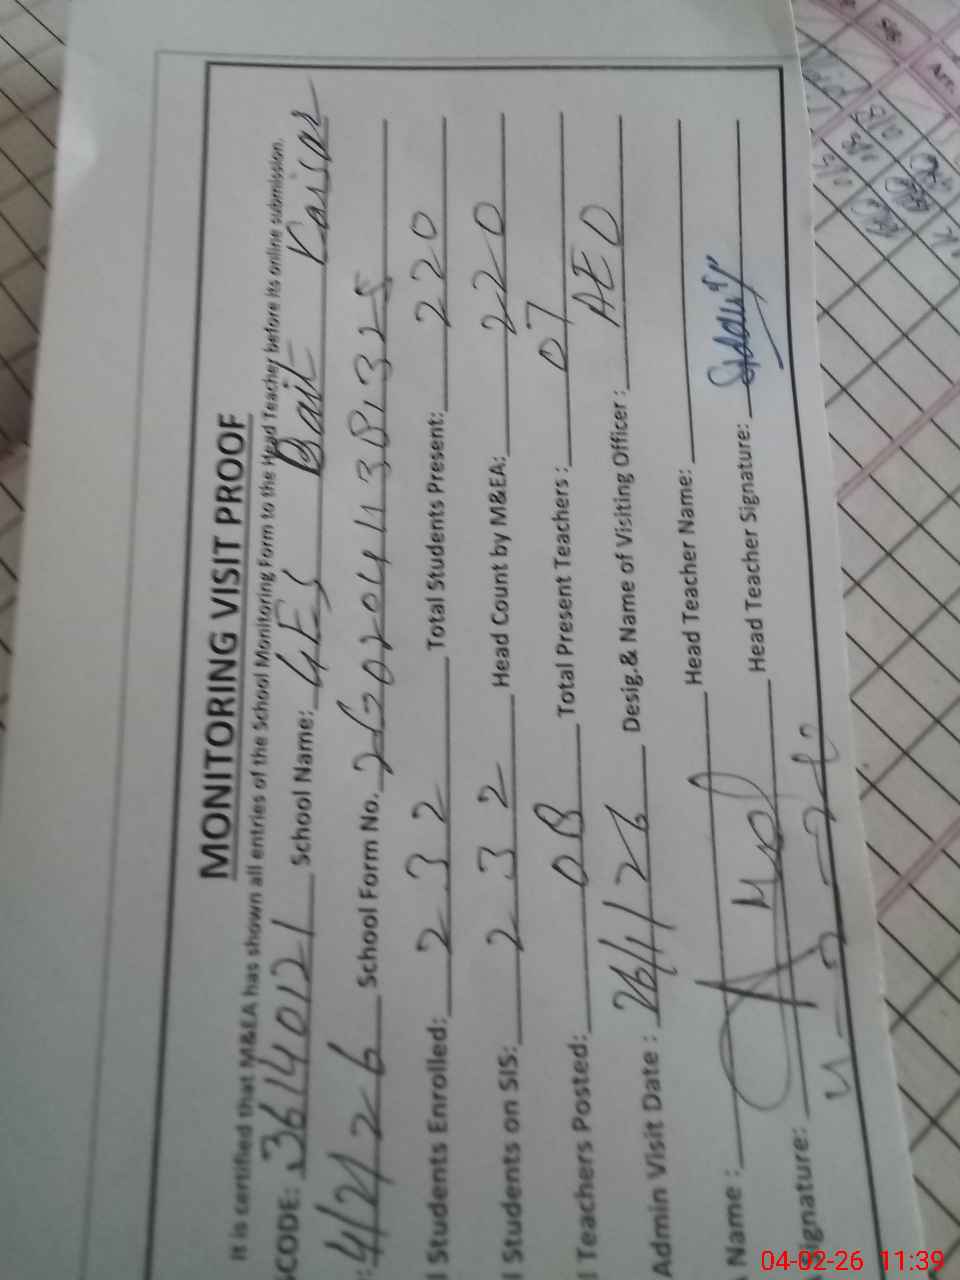 MONITORING VISIT PROOF
It is certified that M&EA has shown all entries of the School Monitoring Form to the Head Teacher before its online submission.
SCODE: 36140121 School Name: GES Bait Kaisar
: 4/2/26 School Form No.
l Students Enrolled: 232 Total Students Present: 220
l Students on SIS: 232 Head Count by M&EA: 220
l Teachers Posted: 08 Total Present Teachers : 07
Admin Visit Date : 26/1/26 Desig.& Name of Visiting Officer : AEO
Name : Head Teacher Name:
Signature: Head Teacher Signature:
04-02-26 11:39
Sig.
Arr.